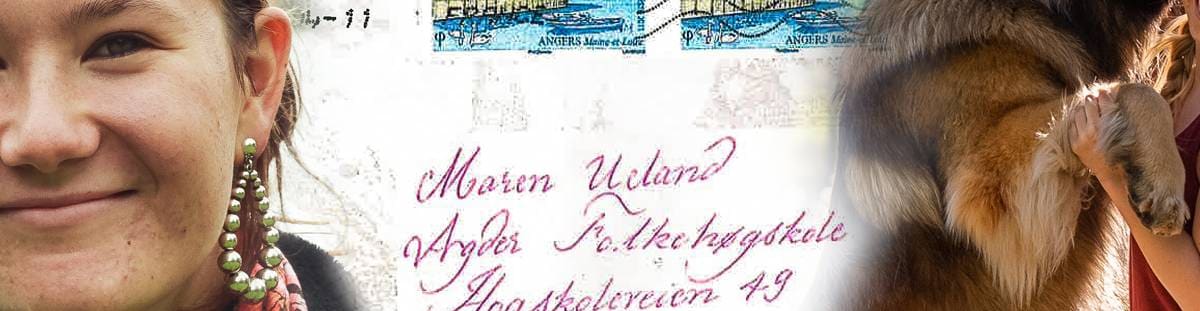 -11
ANGERS Maine-et-Loire
ANGERS Maine-et-Loire
Maren Ueland
Agder Folkehøgskole
49